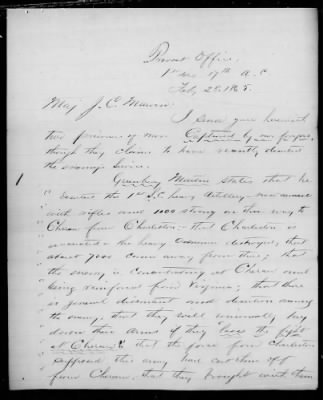 Provost Office
1st Div. 17th A.C
Feby 28. 1865.
Maj J. C. Marvin
I send you herewith
two prisoners of war Captured by our forgers,
though they claim to have recently deserted
the enemy's service.
Greenberry states that he
deserted the 1st S.C. heavy Artillery - now armed
with rifles and 1000 strong on their way to
Cheraw from Charleston - that Charleston is
evacuated & the heavy destroyed, that
about 7000 came away from there; that
the enemy is concentrating at Cheraw and
being reinforced from Virginia; that there
is general discontent and desertion among
the enemy, that they will universally lay
down their arms if they lose the fight
at Cheraw & that the force from Charleston
supposed the army had cut them off
from Cheraw, that they brought with them